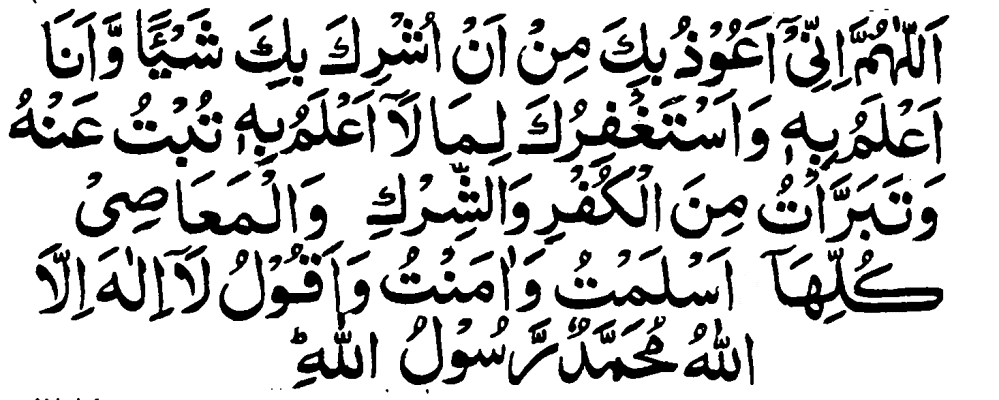 اَللّٰهُمَّ اِنِّیْۤ اَعُوْذُ بِكَ مِنْ اَنْ اُشْرِكَ بِكَ شَیْئًا وَّاَنَا
اَعْلَمُ بِهٖ وَاَسْتَغْفِرُكَ لِمَا لَاۤ اَعْلَمُ بِهٖ تُبْتُ عَنْهُ
وَتَبَرَّاْتُ مِنَ الْكُفْرِ وَالشِّرْكِ وَالْمَعَاصِیْ
كُلِّهَاۤ اَسْلَمْتُ وَاٰمَنْتُ وَاَقُوْلُ لَاۤ اِلٰهَ اِلَّا
اللّٰهُ مُحَمَّدٌ رَّسُوْلُ اللّٰهِؕ